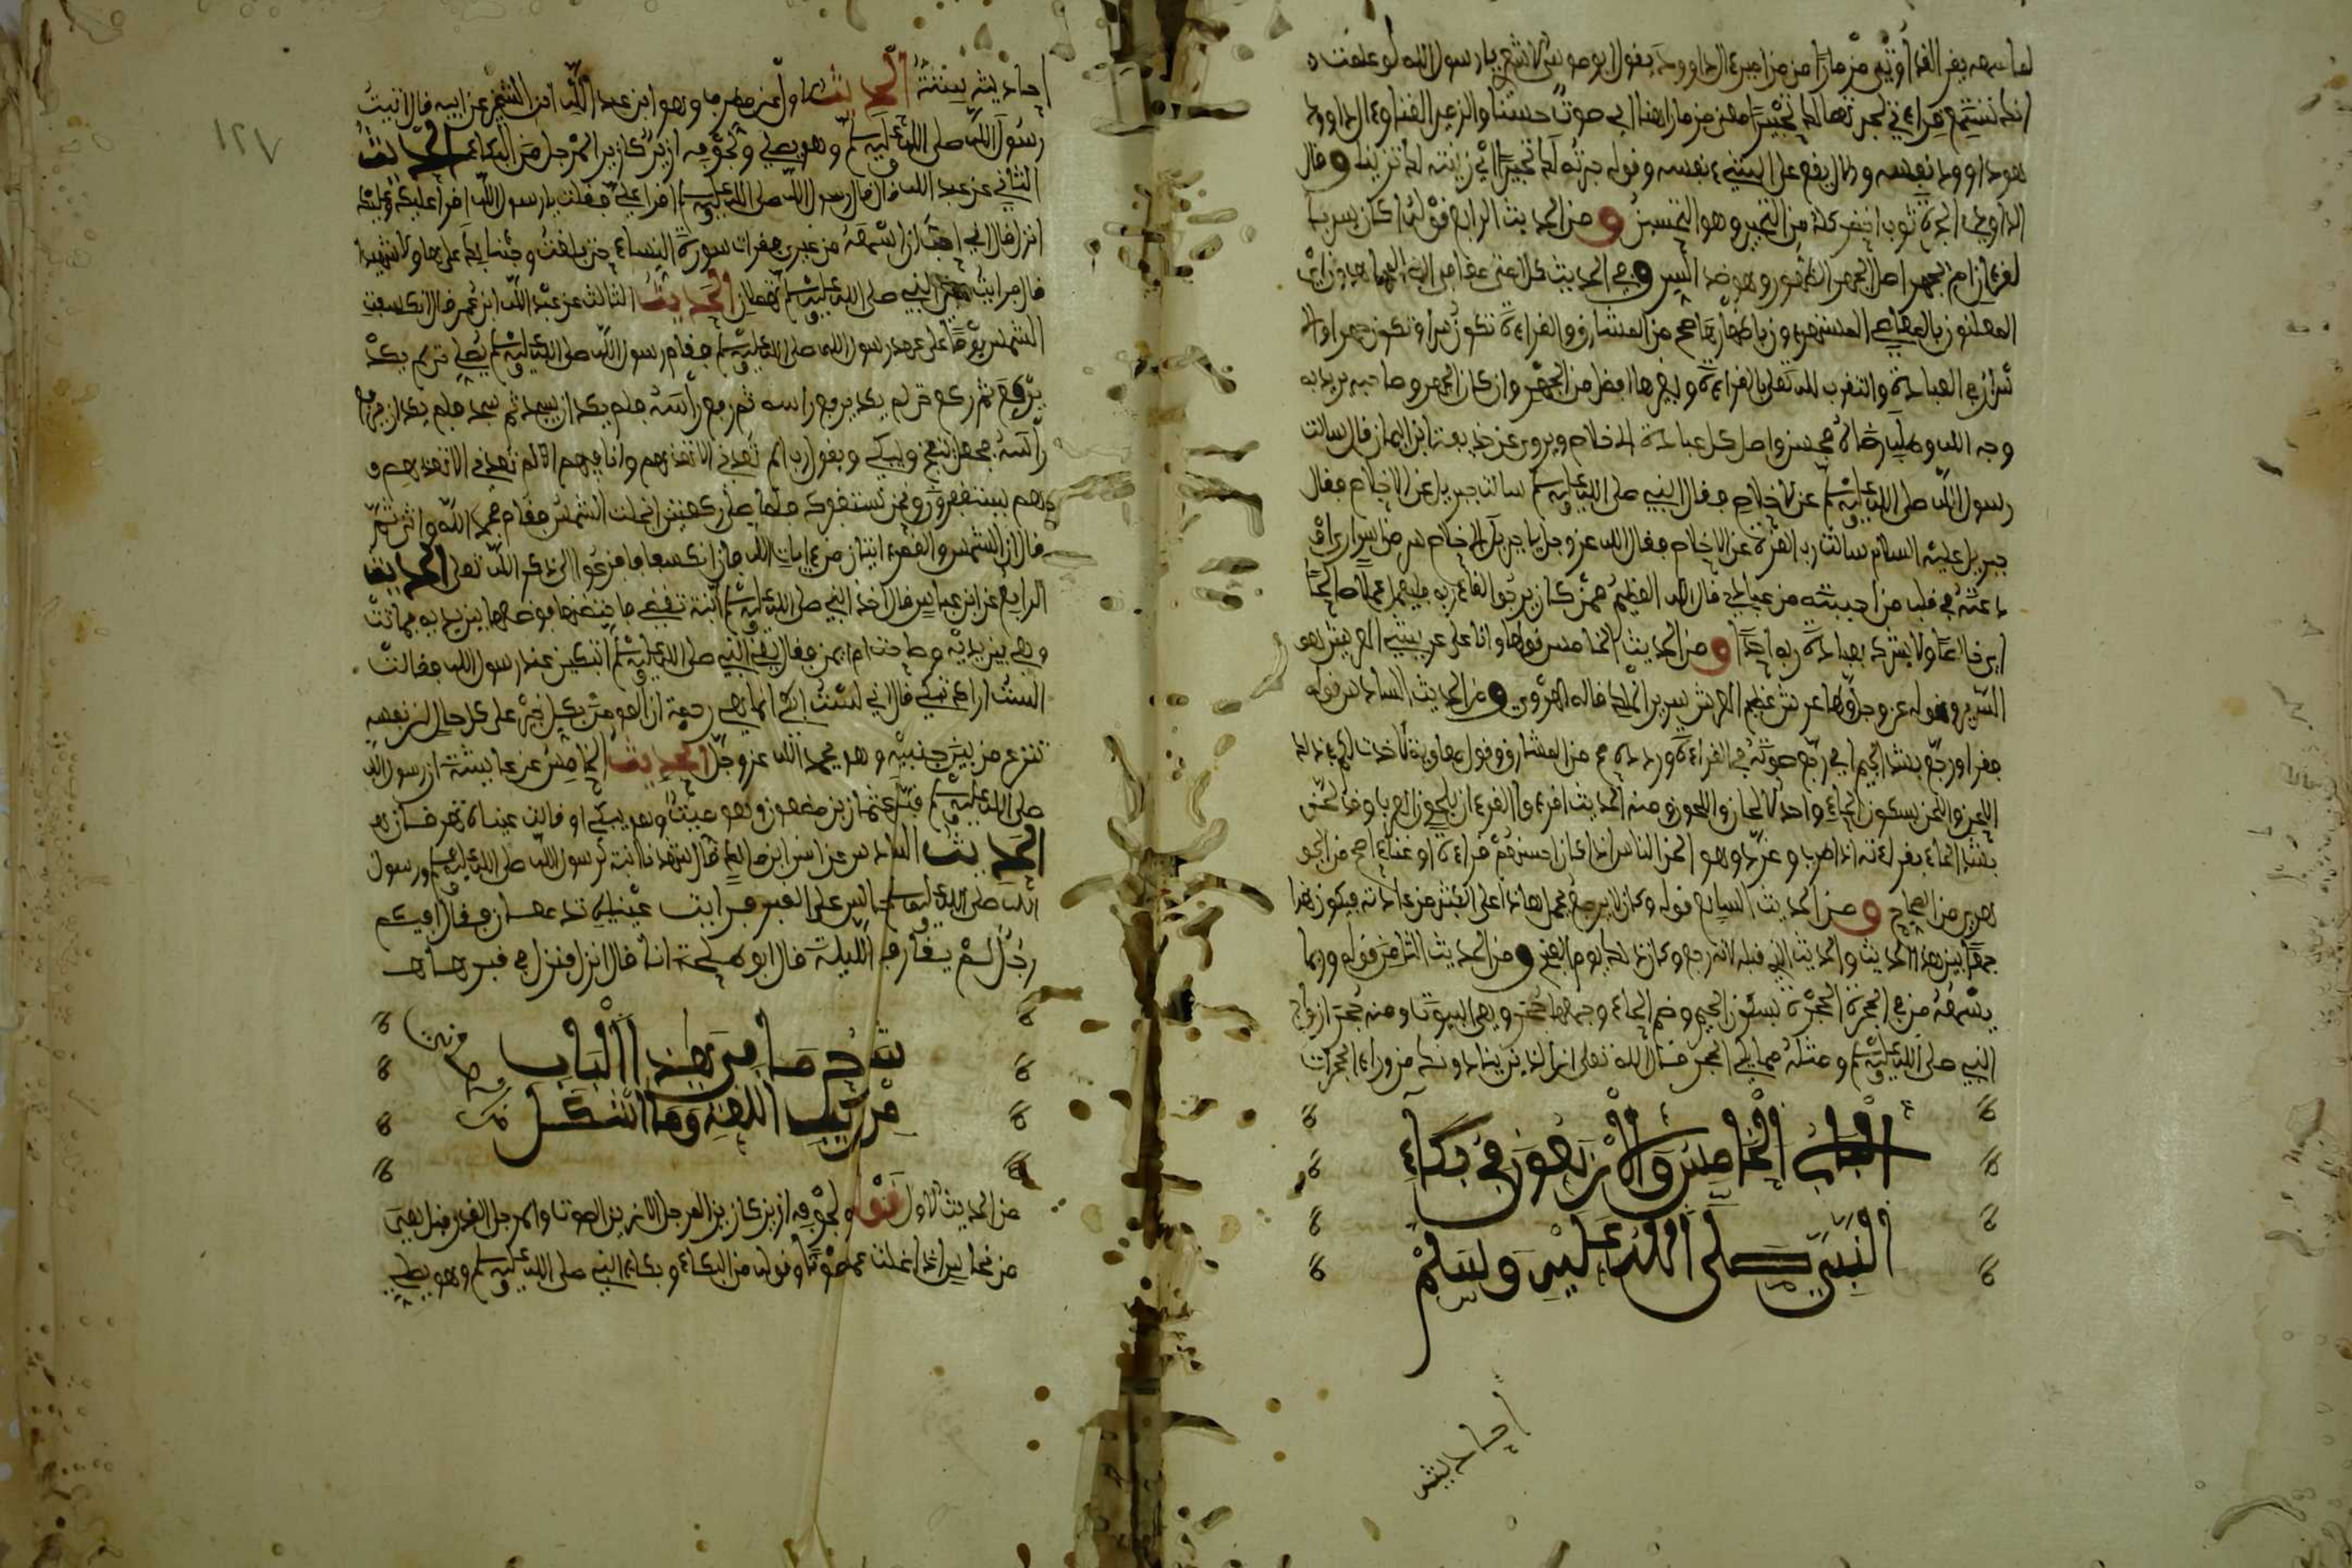 لما سمعه يقرأ لقد أوتي مزمارا من مزامير ءال داوود يقول أبو موسى الأشعري يا رسول الله لو علمت
أنك تستمع قراءتي لحبرتها لك تحبيرا معنى مزمارا هنا أي صوتا حسنا والزمير الغناء وءال داوود
هو داوود نفسه وءال يقع على الشيء نفسه وقوله حبرته لك تحبيرا أي زينته لك تزيينا وقال
من التحبير وهو التحسين ومن الحديث الرابع قوله أكان يسر با
لقراءة أم يجهر أصل الجهر الظهور وهو ضد السر وفي الحديث كل أمتي معافى إلا المجاهرون أي
المعلنون بالمعاصي المستهترون بإظهارها صح من المشارق والقراءة تكون سرا وتكون جهرا ولا
في العبادة والتقرب لله تعلى بالقراءة وغيرها أفضل من الجهر وإن كان الجهر وصاحبه يريد به
وجه الله وطلب رضاه فحسن وأصل كل عبادة الإخلاص ويروى عن حذيفة ابن اليمان قال سألت
رسول الله صلى الله عليه وسلم عن الإخلاص فقال النبي صلى الله عليه وسلم سألت جبريل عن الإخلاص فقال
جبريل عليه السلام سألت رب العزة عن الإخلاص فقال الله عز وجل يا جبريل الإخلاص سر من أسراري
أودعته في قلب من أحببته من عبادي قال الله العظيم فمن كان يرجوا لقاء ربه فليعمل عملا صالحا
أي خالصا ولا يشرك بعبادة ربه أحدا ومن الحديث الخامس قولها وأنا على عريشي العريش هو
السرير وقوله عز وجل ولها عرش عظيم العرش سرير الملك قاله الهروي ومن الحديث السادس قوله
فقرأ ورجع بشد الجيم أي رجع صوته في القراءة وردده صح من المشارق وقول معاوية لأخذت لكم في ذلك
اللحن واللحن بسكون الحاء واحد الألحان واللحون ومنه الحديث اقرءوا القرءان بلحون العرب وقد لحن
بشد الحاء بقراءته إذا طرب وغرد وهو ألحن الناس إذا كان أحسنهم قراءة أو غناء صح من الجو
هري من الصحاح ومن الحديث السابع قوله وكان لا يرجع يحمل هاذا على الكثير من عاداته فيكون هذا
جمعا بين هذا الحديث والحديث الذي قبله لأنه رجع وكان ذلك يوم الفتح ومن الحديث الثامن قوله وربما
يسمعه من في الحجرة الحجرة بسكون الجيم وضم الحاء وجمعها حجر وهي البيوت ومنه حجر أزواج
النبي صلى الله عليه وسلم قال الله تعلى إن الذين ينادونك من وراء الحجرات
الباب الخامس والأربعون في بكاء
النبي صلى الله عليه وسلم
أحاديثه
١٢٧
أحاديثه ستة الحديث الأول عن مطرف وهو ابن عبد الله ابن الشخير عن أبيه قال أتيت
رسول الله صلى الله عليه وسلم وهو يصلي ولجوفه أزيز كأزيز المرجل من البكاء الحديث
الثاني عن عبد الله قال قال رسول الله صلى الله عليه وسلم اقرأ علي فقلت يا رسول الله أقرأ عليك وعليك
أنزل قال إني أحب أن أسمعه من غيري فقرأت سورة النساء حتى بلغت وجئنا بك على هاؤلاء شهيدا
قال فرأيت عيني النبي صلى الله عليه وسلم تهملان الحديث الثالث عن عبد الله ابن عمر قال انكسفت
الشمس يوما على عهد رسول الله صلى الله عليه وسلم فقام رسول الله صلى الله عليه وسلم يصلي حتى لم يكد
يركع ثم ركع حتى لم يكد يرفع رأسه ثم رفع رأسه فلم يكد أن يسجد ثم سجد فلم يكد أن يرفع
رأسه فجعل ينفخ ويبكي ويقول رب ألم تعدني ألا تعذبهم وأنا فيهم ألم تعدني ألا تعذبهم و
هم يستغفرون ونحن نستغفرك فلما صلى ركعتين انجلت الشمس فقام فحمد الله وأثنى
قال إن الشمس والقمر ءايتان من ءايات الله فإذا انكسفا فافزعوا إلى ذكر الله تعلى الحديث
الرابع عن ابن عباس قال أخذ النبي صلى الله عليه وسلم ابنة تقضي فاحتضنها فوضعها بين يديه فماتت
وهي بين يديه وصاحت أم أيمن فقال يعني النبي صلى الله عليه وسلم أتبكين عند رسول الله فقالت
ألست أراك تبكي قال إني لست أبكي إنما هي رحمة إن المؤمن بكل خير على كل حال إن نفسه
تنزع من بين جنبيه وهو يحمد الله عز وجل الحديث الخامس عن عائشة أن رسول الله
صلى الله عليه وسلم قبل عثمان بن مظعون وهو ميت وهو يبكي أو قالت عيناه تهرقان
الحديث السادس عن أنس ابن مالك قال شهدنا ابنة لرسول الله صلى الله عليه وسلم ورسول
الله صلى الله عليه وسلم جالس على القبر فرأيت عينيه تدمعان فقال أفيكم
رجل لم يقارف الليلة قال أبو طلحة أنا قال انزل فنزل في قبرها
شرح ما في هذا الباب
من غريب اللغة وما أشكل
من الحديث الأول قوله ولجوفه أزيز كأزيز المرجل الأزيز الصوت والمرجل القدر قيل يعنى
من نحاس إذا غلت صوتا وقوله من البكاء وبكاء النبي صلى الله عليه وسلم وهو يصلي